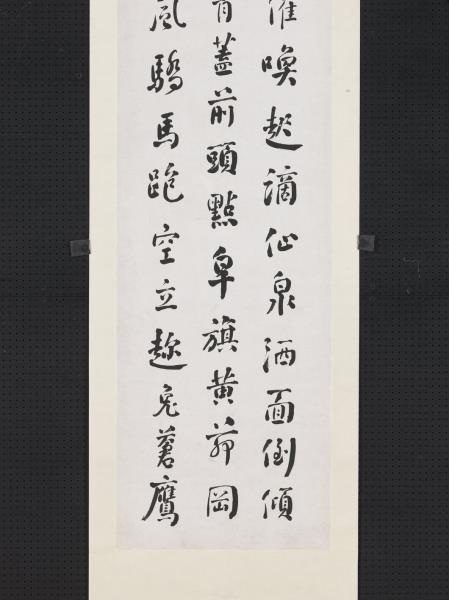 喚起謫仙泉洒面倒傾
青蓋前頭點皁旗黃茆岡
風驕馬跑空立趂兔蒼鷹